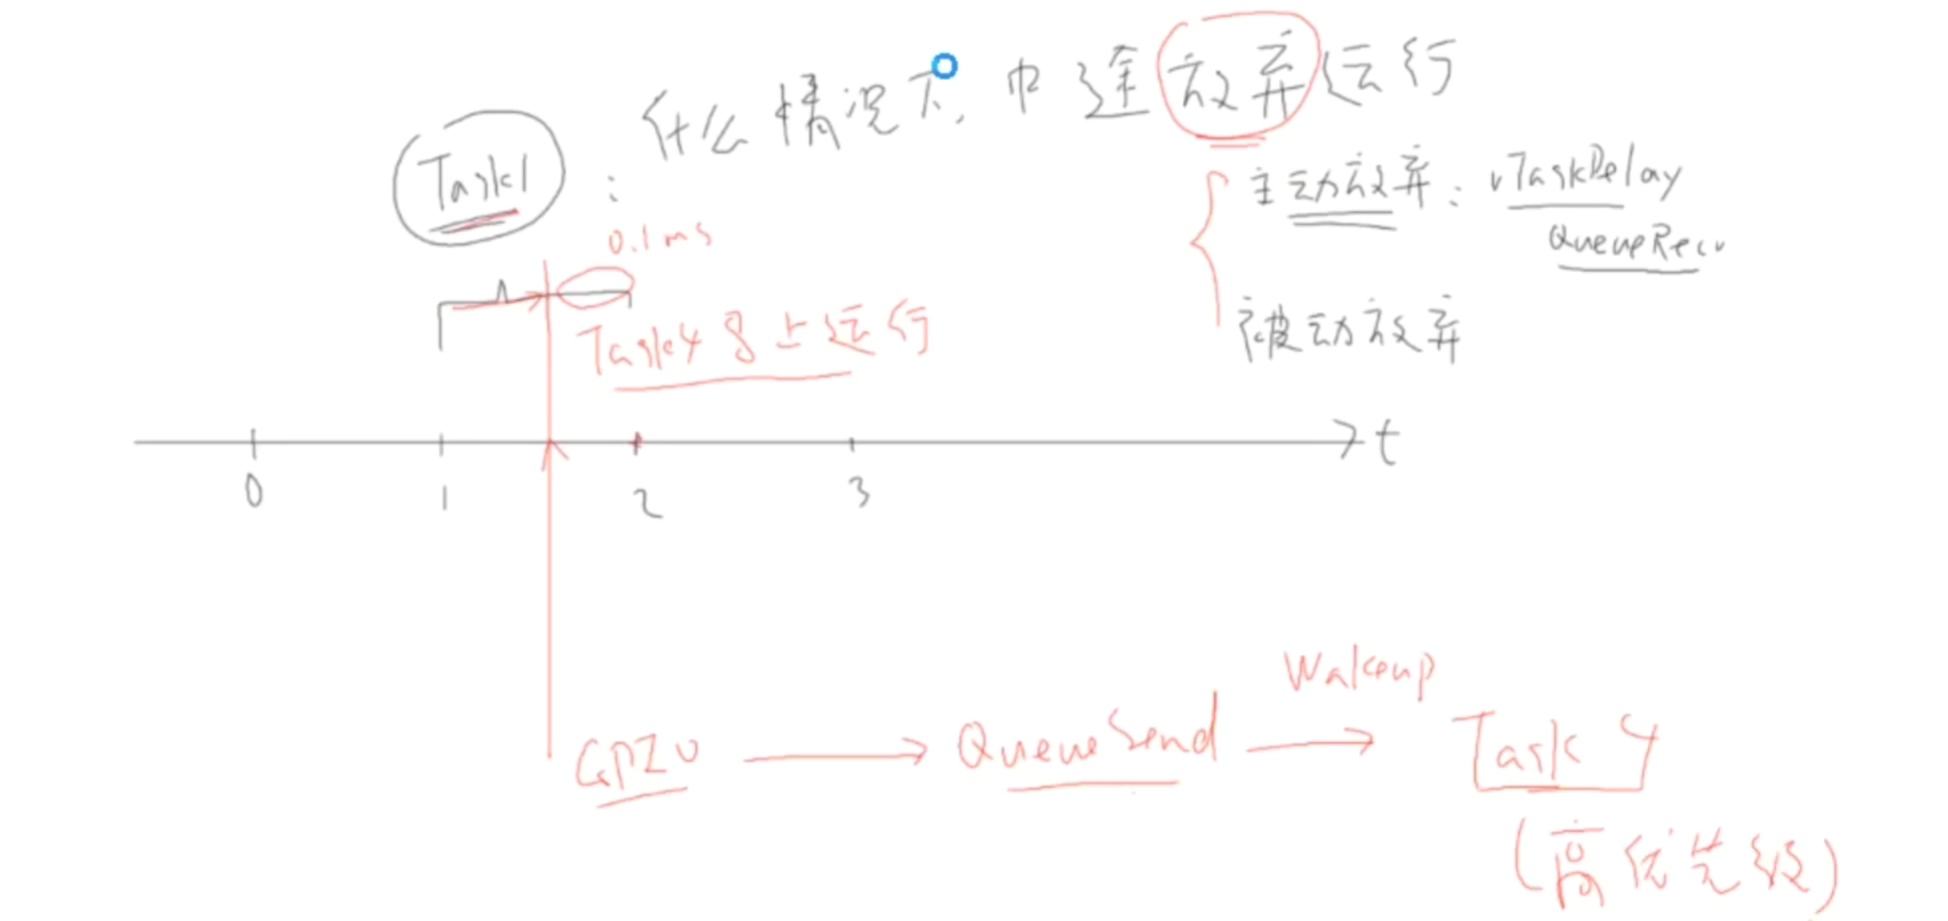 Task1 : 什么情况下, 中途放弃运行
主动放弃: vTaskDelay
QueueRecv
被动放弃
0.1ms
Task4 马上运行
t
0 1 2 3
GPIO
QueueSend
Wakeup
Task 4
(高优先级)